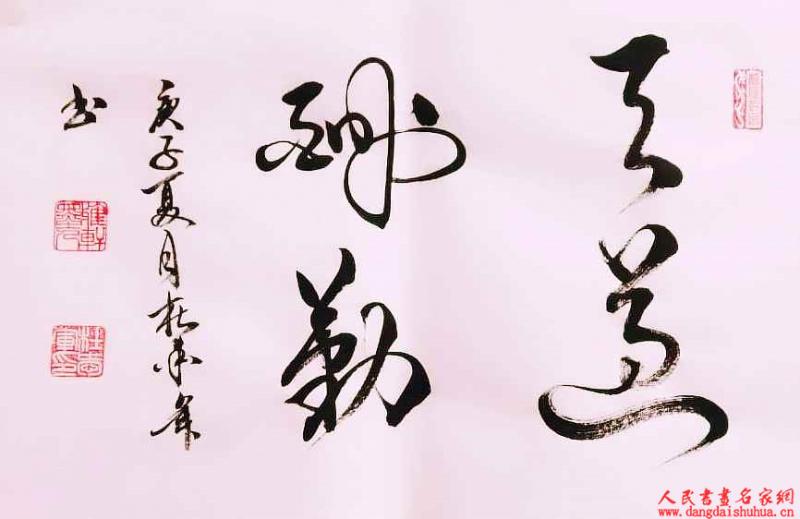 天道
酬勤
庚子夏月杜
书
人民書畫名家網
www.dangdaishuhua.cn